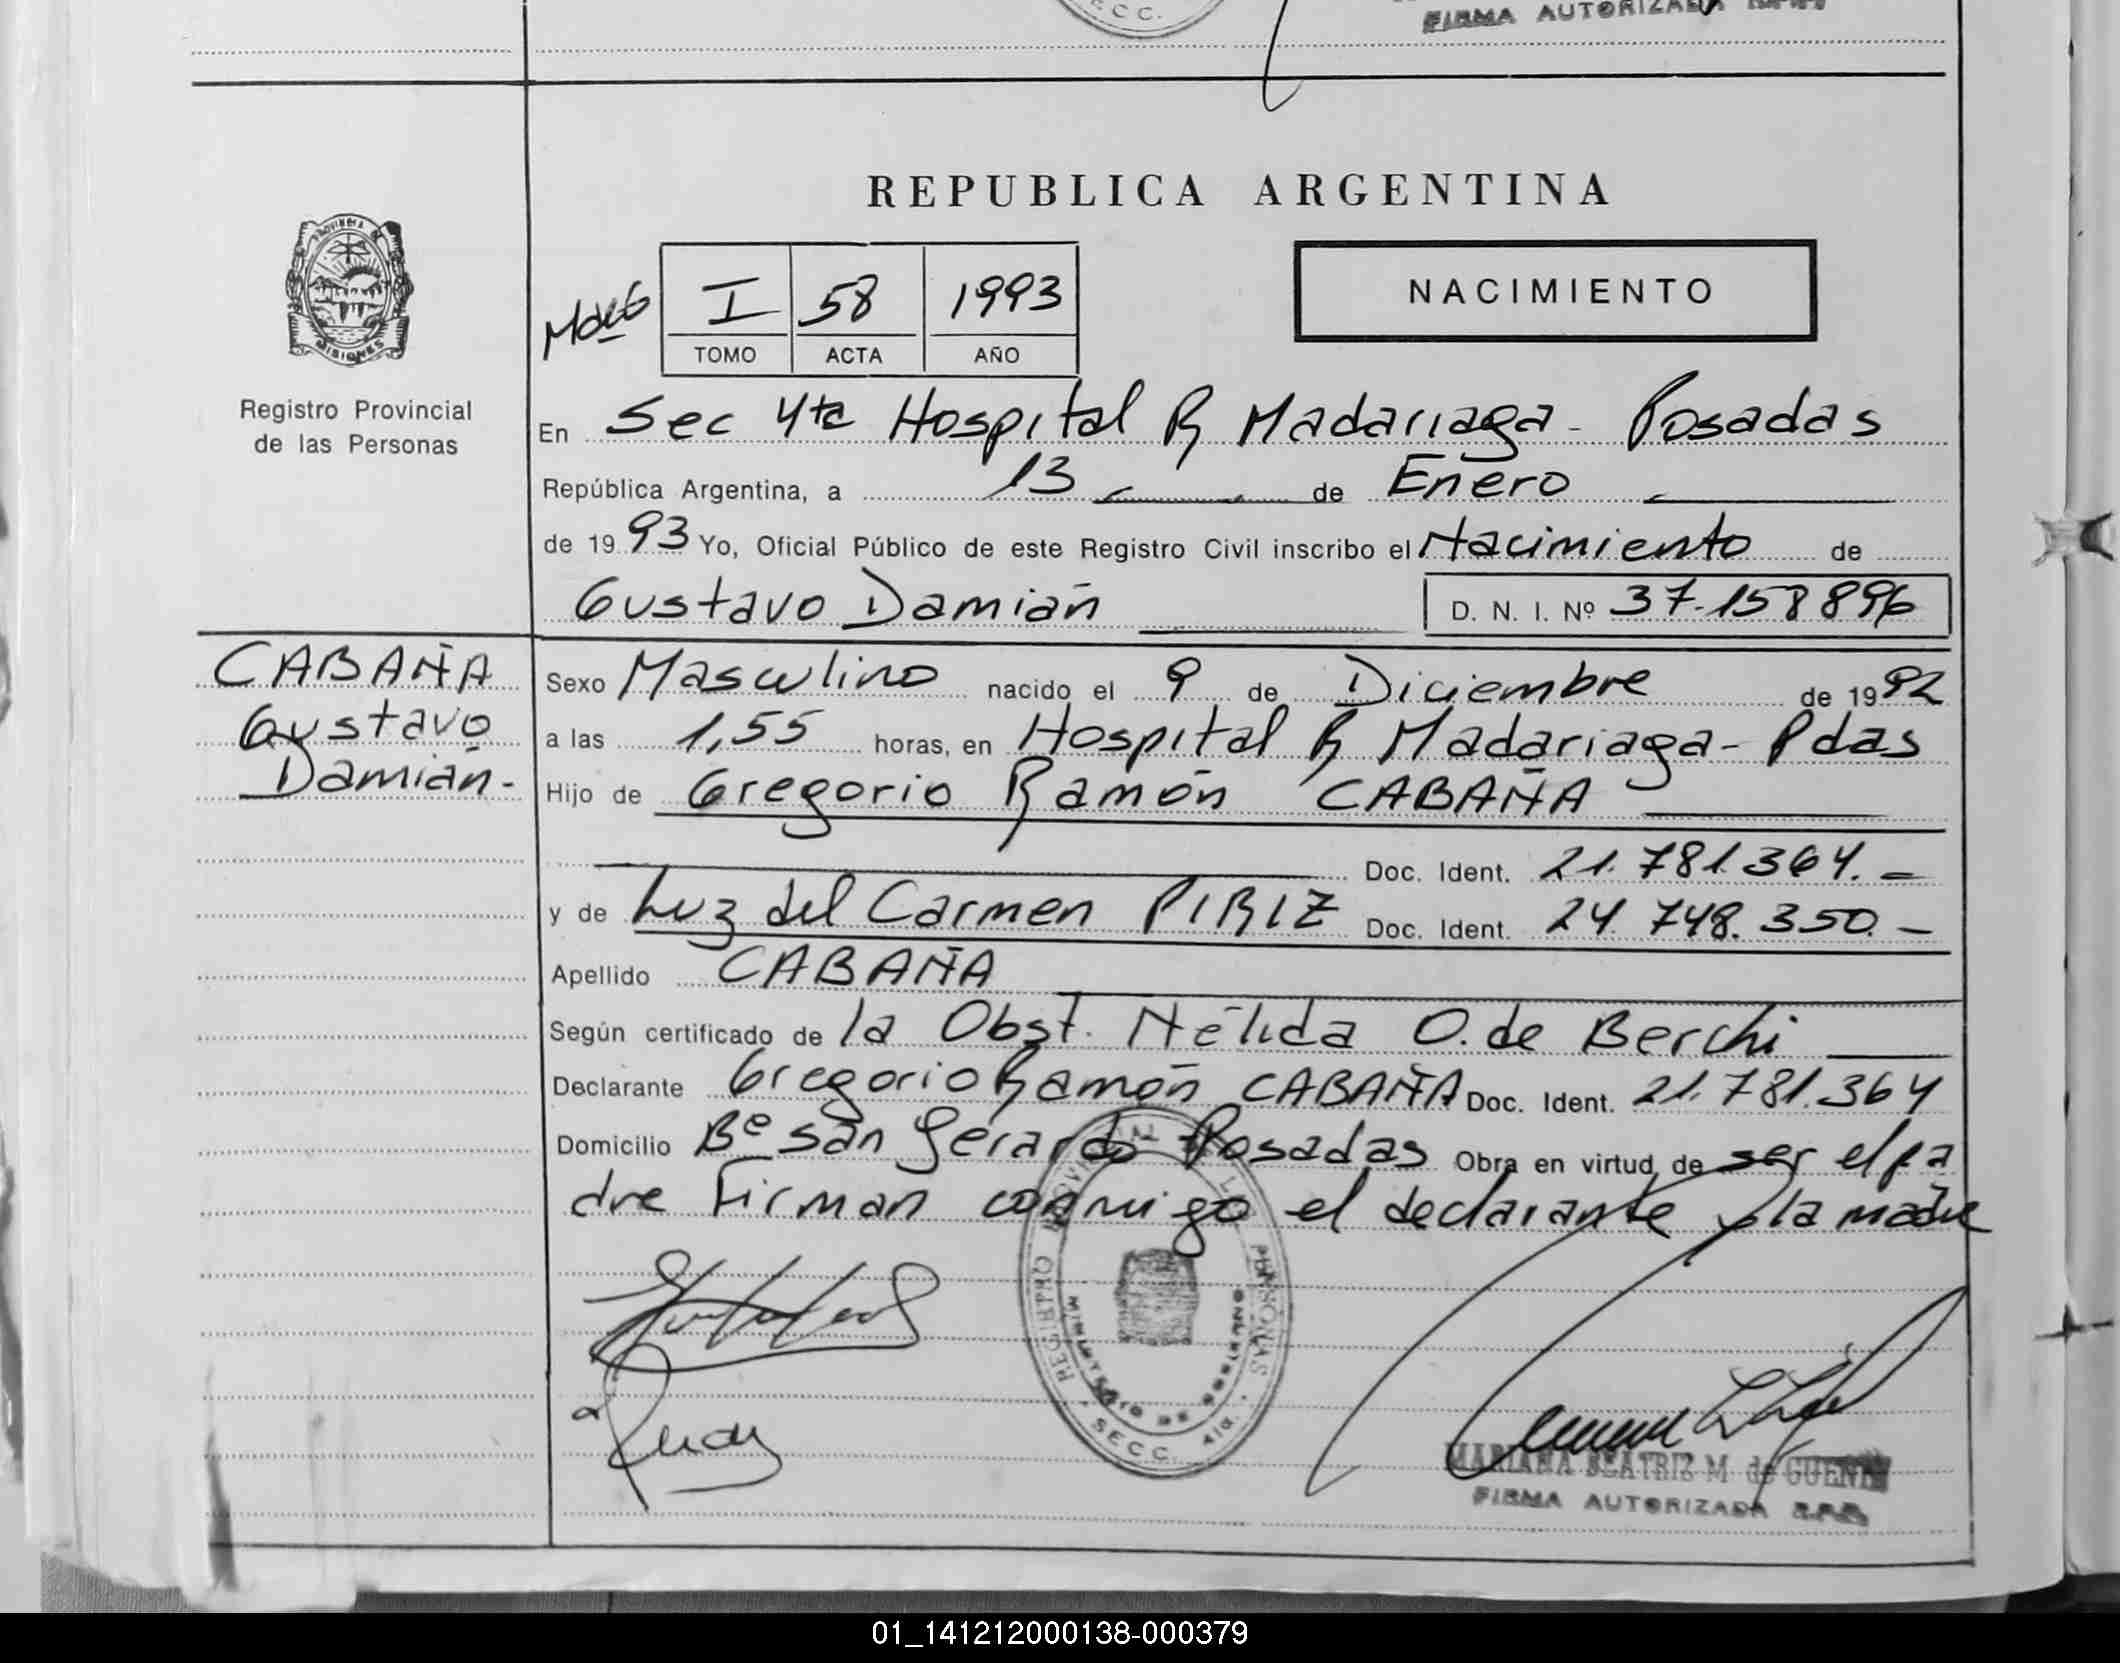 S E C C.
FIRMA AUTORIZADA
REPUBLICA ARGENTINA
Provincia de
MISIONES
Registro Provincial
de las Personas
I 58 1993
TOMO ACTA AÑO
NACIMIENTO
En Sec 4ta Hospital R Madariaga - Posadas
República Argentina, a 13 de Enero
de 1993 Yo, Oficial Público de este Registro Civil inscribo el Nacimiento de
Gustavo Damián D. N. I. Nº 37.158896
CABAÑA
Gustavo
Damián.-
Sexo Masculino nacido el 9 de Diciembre de 1992
a las 1,55 horas, en Hospital R Madariaga - Pdas
Hijo de Gregorio Ramón CABAÑA
Doc. Ident. 21.781.364.-
y de Luz del Carmen PIRIZ Doc. Ident. 24.748.350.-
Apellido CABAÑA
Según certificado de la Obst. Nélida O. de Berchi
Declarante Gregorio Ramón CABAÑA Doc. Ident. 21.781.364
Domicilio Bº San Gerardo Posadas Obra en virtud de ser el pa
dre Firman conmigo el declarante y la madre
REGISTRO PROVINCIAL DE LAS PERSONAS
MINISTERIO DE GOBIERNO
SECC. 4ta.
MARIANA BEATRIZ M. de
FIRMA AUTORIZADA R.P.P.
01_141212000138-000379